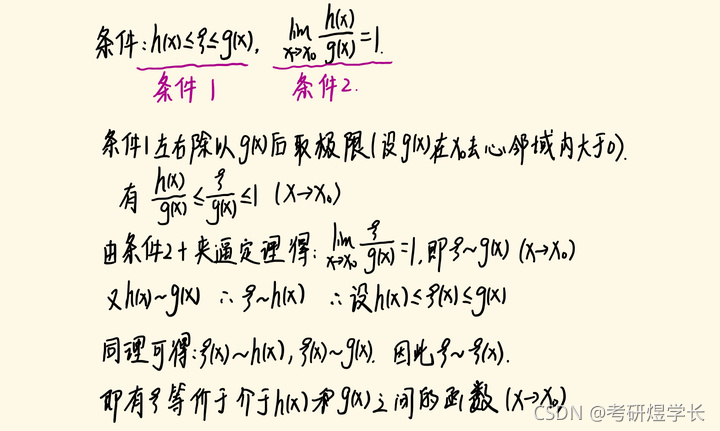 条件:h(x)≤ξ≤g(x), lim x→x₀ h(x)/g(x)=1.
条件1 条件2.
条件1左右除以g(x)后取极限(设g(x)在x₀去心邻域内大于0).
有 h(x)/g(x)≤ξ/g(x)≤1 (x→x₀)
由条件2+夹逼定理得: lim x→x₀ ξ/g(x)=1,即ξ~g(x) (x→x₀)
又h(x)~g(x) ∴ξ~h(x) ∴设h(x)≤ξ(x)≤g(x)
同理可得:ξ(x)~h(x),ξ(x)~g(x). 因此ξ~ξ(x).
即有ξ等价于介于h(x)和g(x)之间的函数(x→x₀)
CSDN @考研煜学长